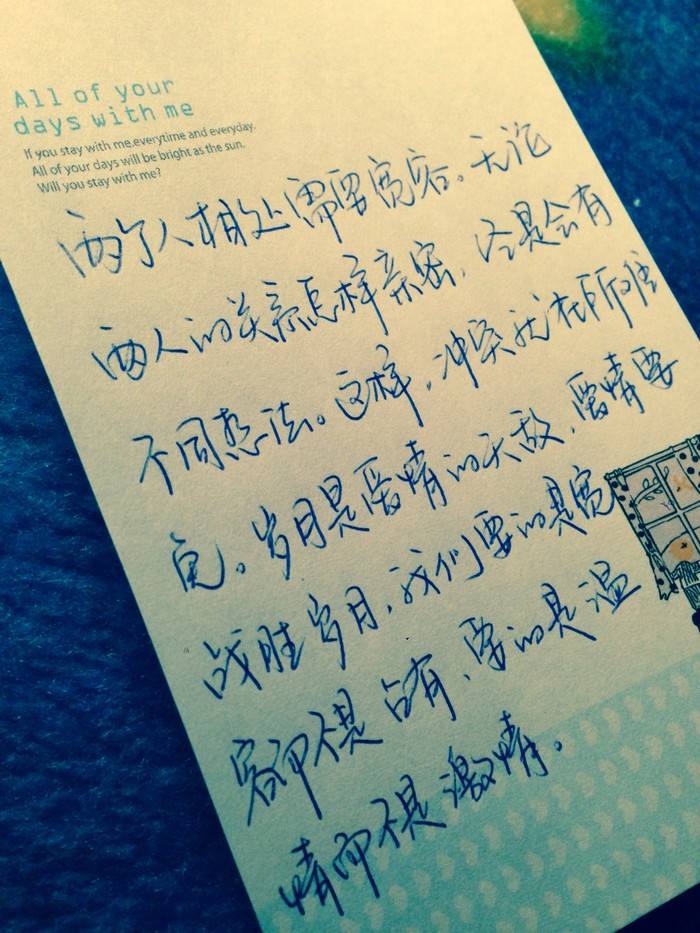 All of your
days with me
If you stay with me, everytime and everyday.
All of your days will be bright as the sun.
Will you stay with me?
两个人相处需要宽容。无论
两人的关系怎样亲密，总是会有
不同想法。这样，冲突就在所难
免。岁月是爱情的天敌，爱情要
战胜岁月，我们要的是宽
容而不是占有，要的是温
情而不是激情。